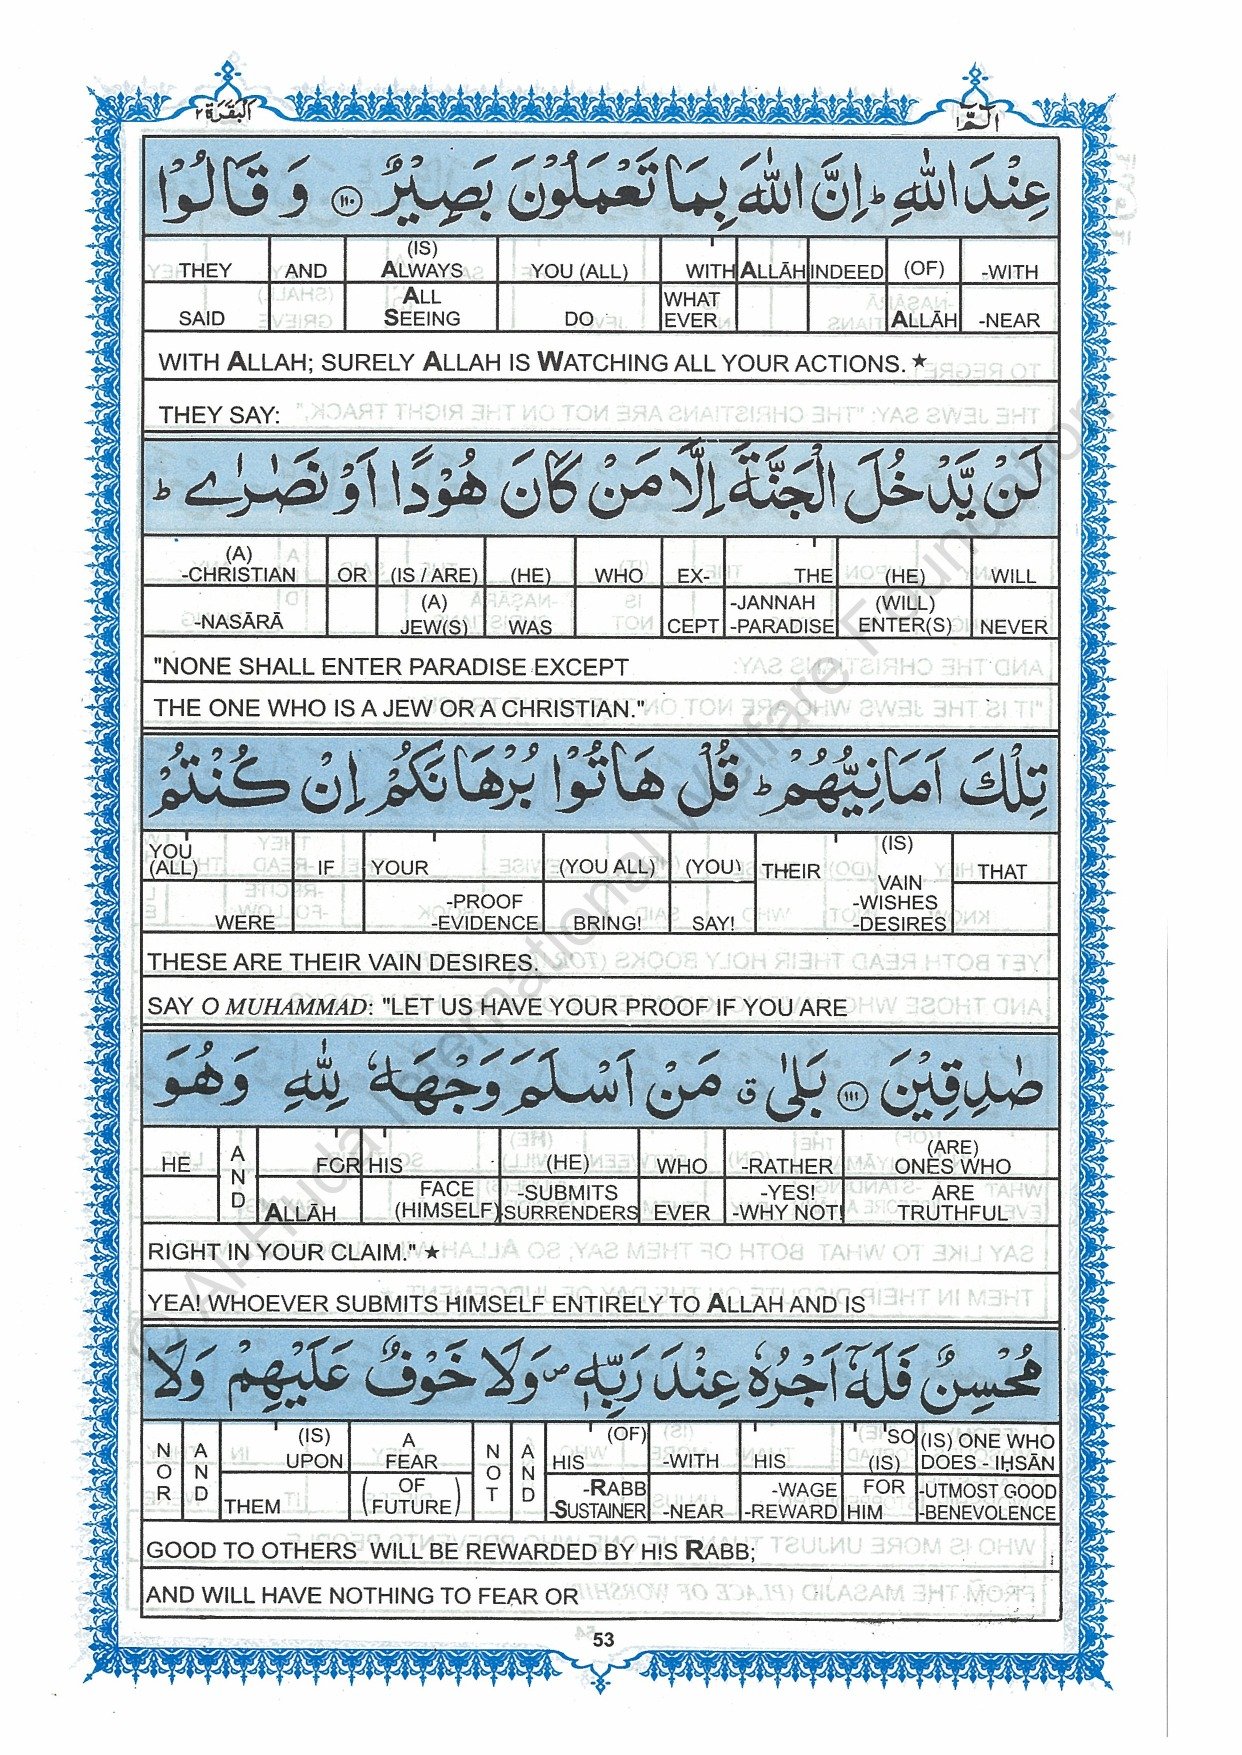 البقرة ٢
الٓمّٓ ١
عِنْدَ اللّٰهِ ؕ اِنَّ اللّٰهَ بِمَا تَعْمَلُوْنَ بَصِيْرٌ ١١٠ وَ قَالُوْا
THEY AND (IS) ALWAYS YOU (ALL) WITH ALLĀH INDEED (OF) -WITH
SAID ALL SEEING DO WHAT EVER ALLĀH -NEAR
WITH ALLAH; SURELY ALLAH IS WATCHING ALL YOUR ACTIONS. ★
THEY SAY:
لَنْ يَّدْخُلَ الْجَنَّةَ اِلَّا مَنْ كَانَ هُوْدًا اَوْ نَصٰرٰى ؕ
(A) -CHRISTIAN OR (IS / ARE) (HE) WHO EX- THE (HE) WILL
-NASĀRĀ (A) JEW(S) WAS CEPT -JANNAH -PARADISE (WILL) ENTER(S) NEVER
"NONE SHALL ENTER PARADISE EXCEPT
THE ONE WHO IS A JEW OR A CHRISTIAN."
تِلْكَ اَمَانِيُّهُمْ ؕ قُلْ هَاتُوْا بُرْهَانَكُمْ اِنْ كُنْتُمْ
YOU (ALL) IF YOUR (YOU ALL) (YOU) THEIR (IS) VAIN THAT
WERE -PROOF -EVIDENCE BRING! SAY! -WISHES -DESIRES
THESE ARE THEIR VAIN DESIRES.
SAY O MUHAMMAD: "LET US HAVE YOUR PROOF IF YOU ARE
صٰدِقِيْنَ ١١١ بَلٰى ق مَنْ اَسْلَمَ وَجْهَهٗ لِلّٰهِ وَهُوَ
HE AND FOR HIS (HE) WHO -RATHER (ARE) ONES WHO
ALLĀH FACE (HIMSELF) -SUBMITS SURRENDERS EVER -YES! -WHY NOT! ARE TRUTHFUL
RIGHT IN YOUR CLAIM." ★
YEA! WHOEVER SUBMITS HIMSELF ENTIRELY TO ALLAH AND IS
مُحْسِنٌ فَلَهٗٓ اَجْرُهٗ عِنْدَ رَبِّهٖ ص وَلَا خَوْفٌ عَلَيْهِمْ وَلَا
NOR AND (IS) UPON A FEAR NOT AND (OF) HIS -WITH HIS SO (IS) (IS) ONE WHO DOES - IḤSĀN
THEM (OF FUTURE) -RABB -SUSTAINER -NEAR -WAGE -REWARD FOR HIM -UTMOST GOOD -BENEVOLENCE
GOOD TO OTHERS WILL BE REWARDED BY HIS RABB;
AND WILL HAVE NOTHING TO FEAR OR
53
© Al-Huda International Welfare Foundation